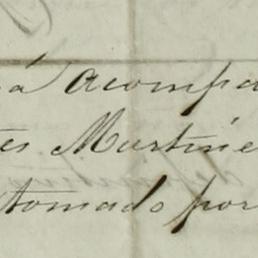 á acompa
tes Martine
tomado por